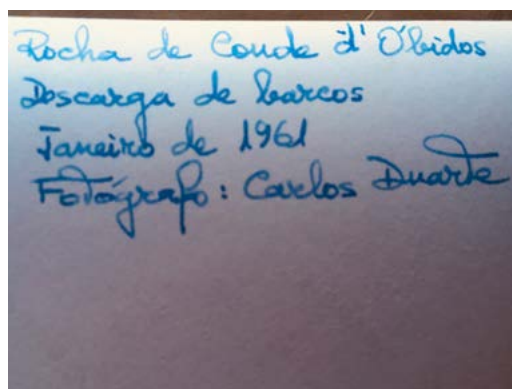 Rocha de Conde d' Óbidos
Descarga de barcos
Janeiro de 1961
Fotógrafo: Carlos Duarte